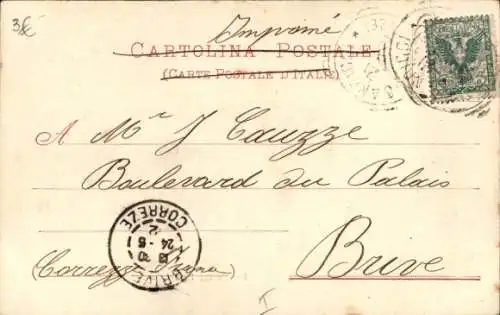 3€
Imprimé
CARTOLINA POSTALE
(CARTE POSTALE D'ITALIE)
A Mr J Cauzze
Boulevard du Palais
Brive
(Corrèze)
BRIVE
CORREZE
24 - 5
I